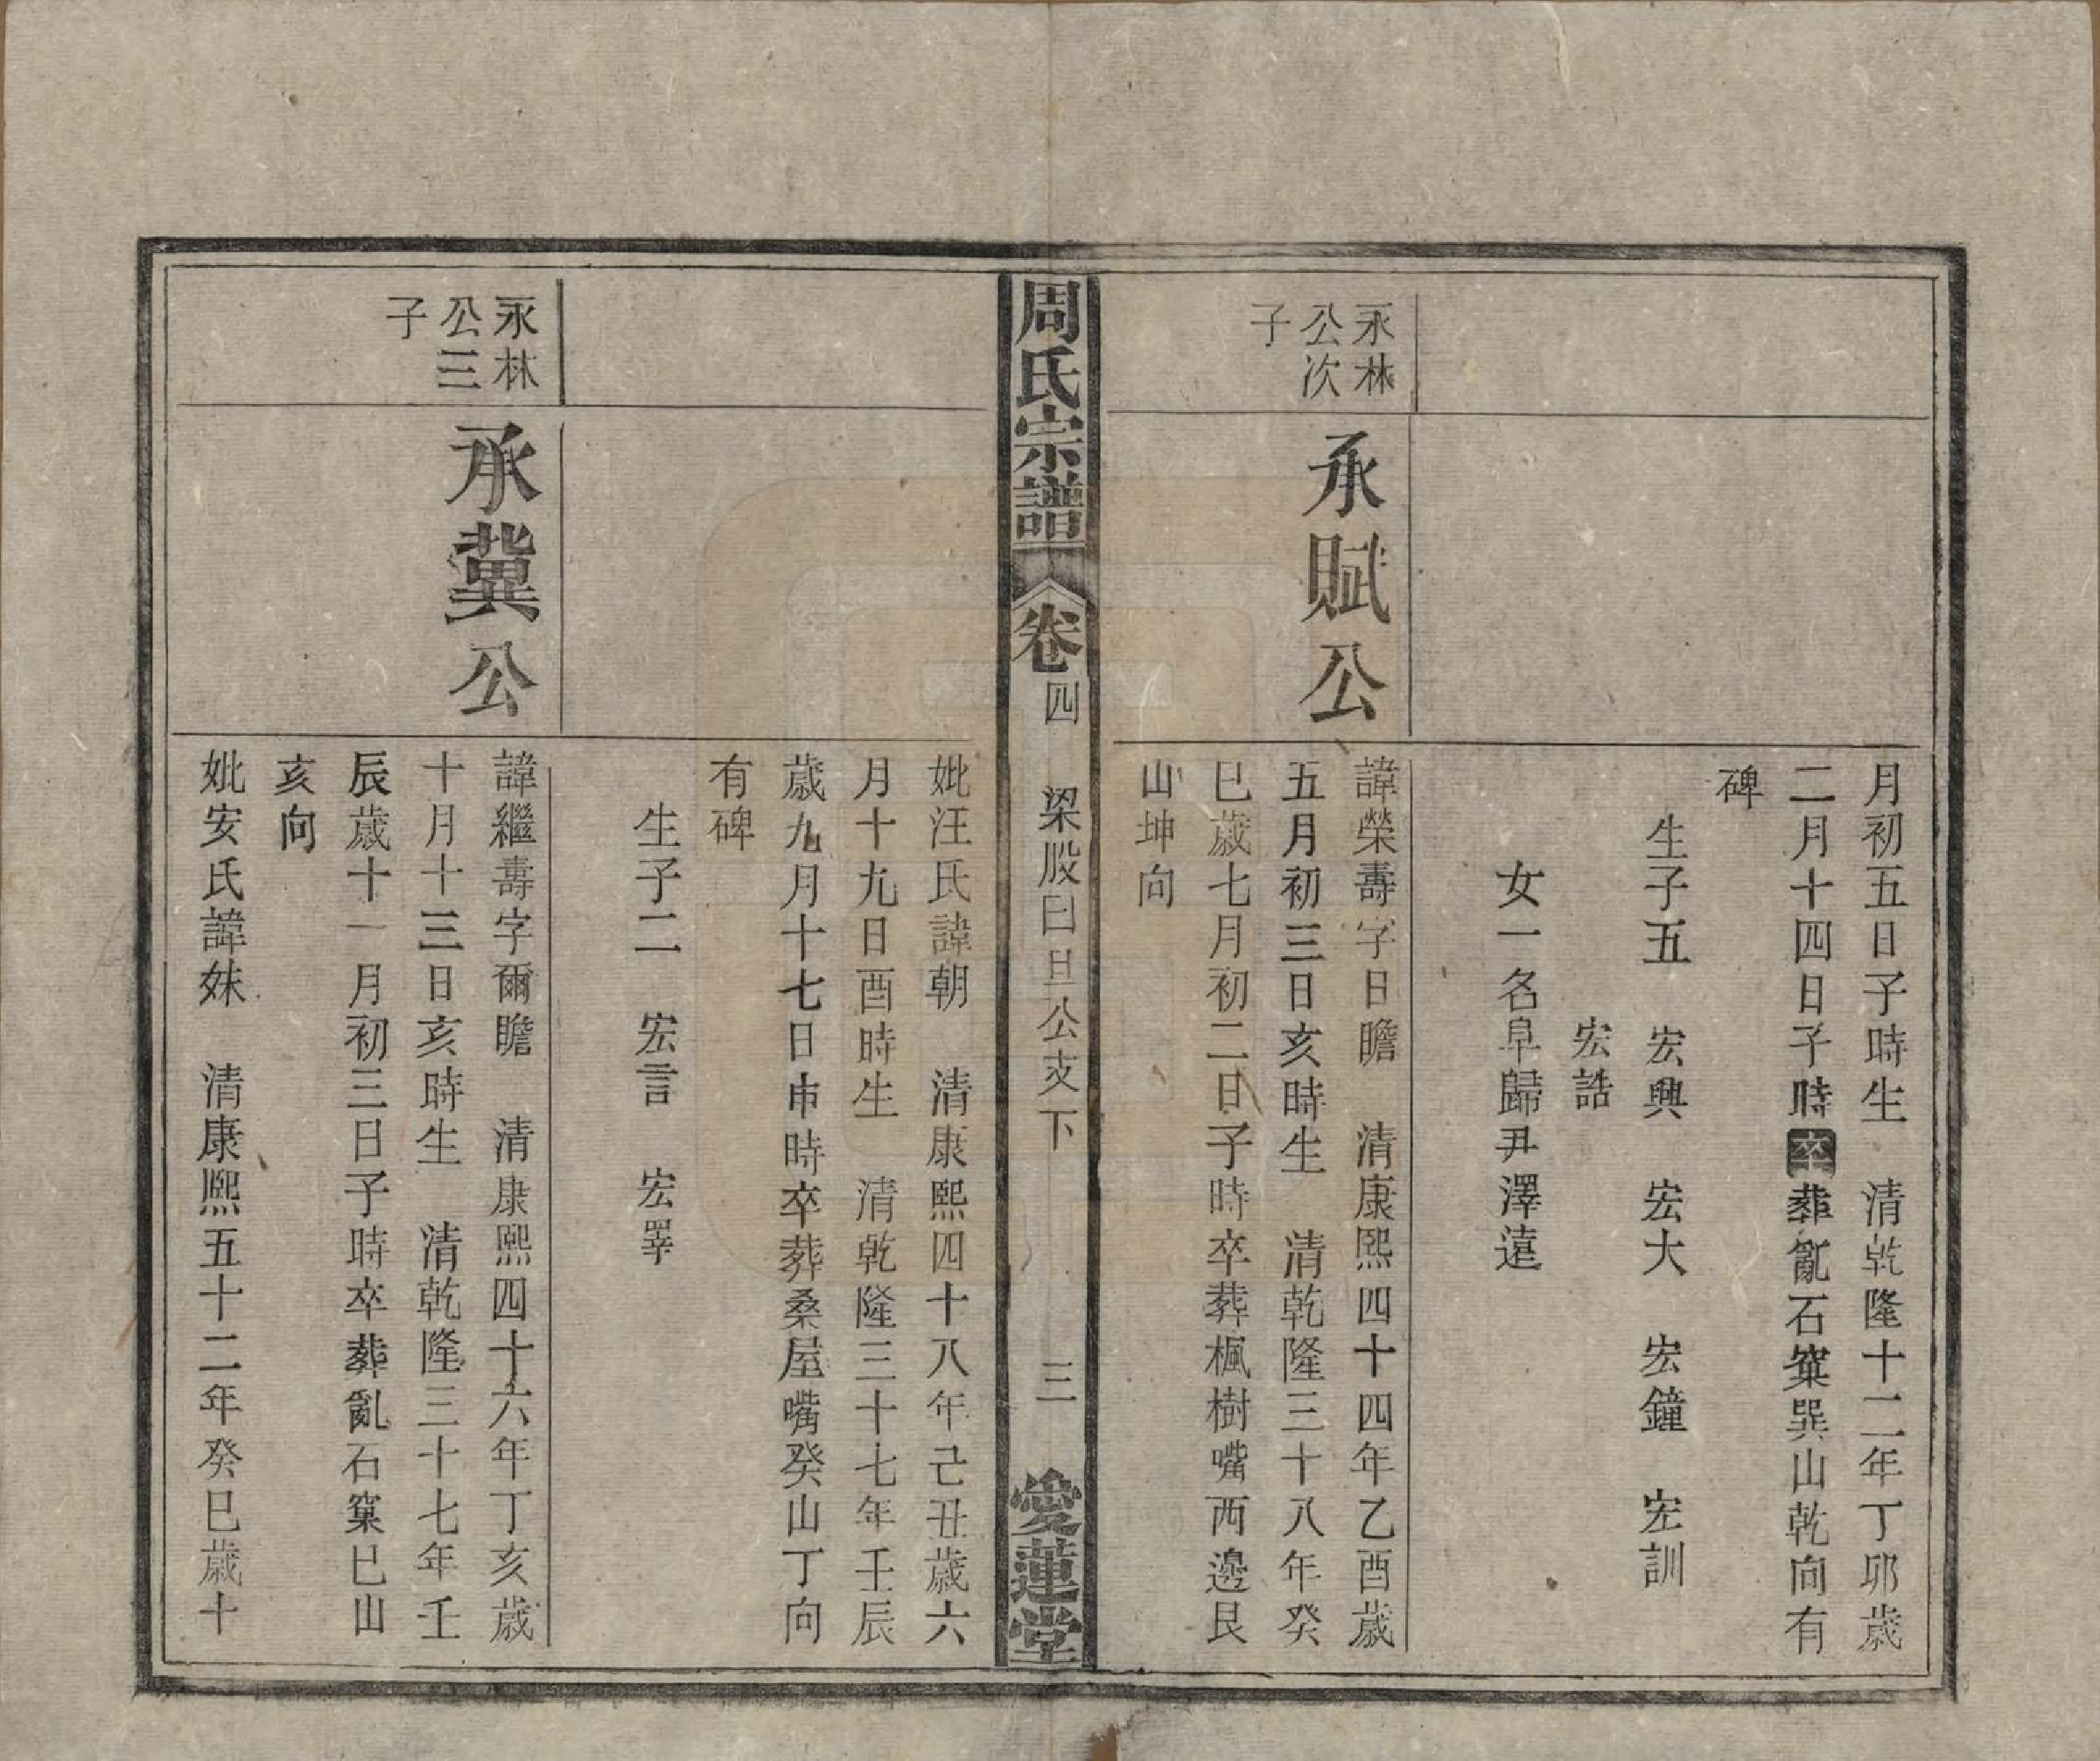 月初五日子時生　清乾隆十二年丁卯歲
二月十四日子時卒葬亂石窠巽山乾向有
碑
生子五　宏興　宏大　宏鐘　宏訓
宏誥
女一名阜歸尹澤遠
永林
公次
子
承賦公
諱榮壽字日瞻　清康熙四十四年乙酉歲
五月初三日亥時生　清乾隆三十八年癸
巳歲七月初二日子時卒葬楓樹嘴西邊艮
山坤向
周氏宗譜
卷四　梁股曰旦公支下　三　愛蓮堂
妣汪氏諱朝　清康熙四十八年己丑歲六
月十九日酉時生　清乾隆三十七年壬辰
歲九月十七日申時卒葬桑屋嘴癸山丁向
有碑
生子二　宏言　宏睪
永林
公三
子
承冀公
諱繼壽字爾瞻　清康熙四十六年丁亥歲
十月十三日亥時生　清乾隆三十七年壬
辰歲十一月初三日子時卒葬亂石窠巳山
亥向
妣安氏諱妹　清康熙五十二年癸巳歲十